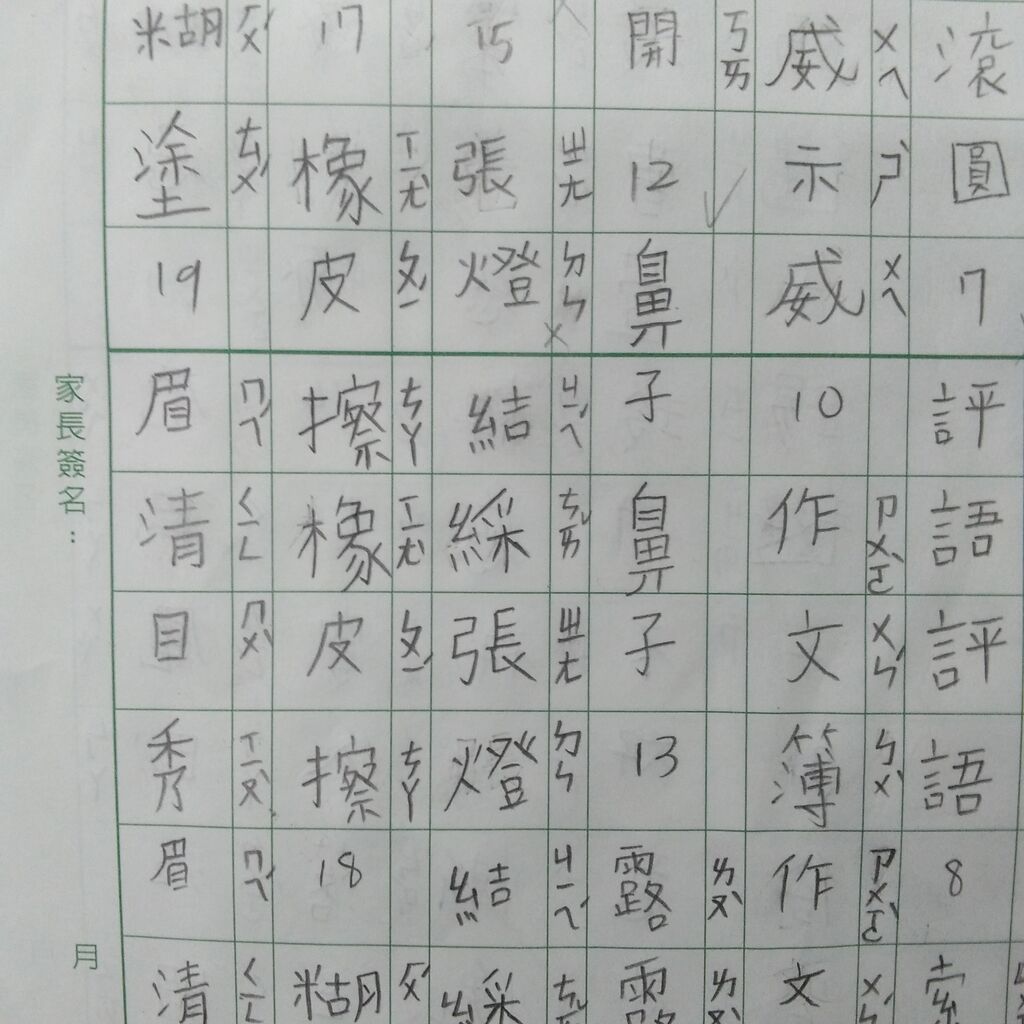 滾圓7評語評語8
威示威10作文簿作文
ㄨㄟ ㄕˋ ㄨㄟ ㄗㄨㄛˋ ㄨㄣˊ ㄅㄨˋ ㄗㄨㄛˋ ㄨㄣˊ
開12鼻子鼻子13露露
ㄎㄞ ㄌㄡˋ ㄌㄡˋ
15張燈結綵張燈結綵
ㄓㄤ ㄉㄥ ㄐㄧㄝˊ ㄘㄞˇ ㄓㄤ ㄉㄥ ㄐㄧㄝˊ ㄘㄞˇ
17橡皮擦橡皮擦18糊
ㄒㄧㄤˋ ㄆㄧˊ ㄘㄚ ㄒㄧㄤˋ ㄆㄧˊ ㄘㄚ ㄏㄨˊ
糊塗19眉清目秀眉清
ㄏㄨˊ ㄊㄨˊ ㄇㄟˊ ㄑㄧㄥ ㄇㄨˋ ㄒㄧㄡˋ ㄇㄟˊ ㄑㄧㄥ
家長簽名：
月